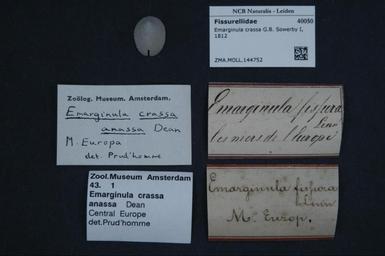 NCB Naturalis - Leiden
Fissurellidae 40050
Emarginula crassa G.B. Sowerby I,
1812
ZMA.MOLL.144752
Zoölog. Museum. Amsterdam.
Emarginula crassa
anassa Dean
M. Europa
det. Prud'homme
Emarginula fissura
Linn
les mers de l'Europe
Zool.Museum Amsterdam
43. 1
Emarginula crassa
anassa Dean
Central Europe
det.Prud'homme
Emarginula fissura
Linn
M. Europ.